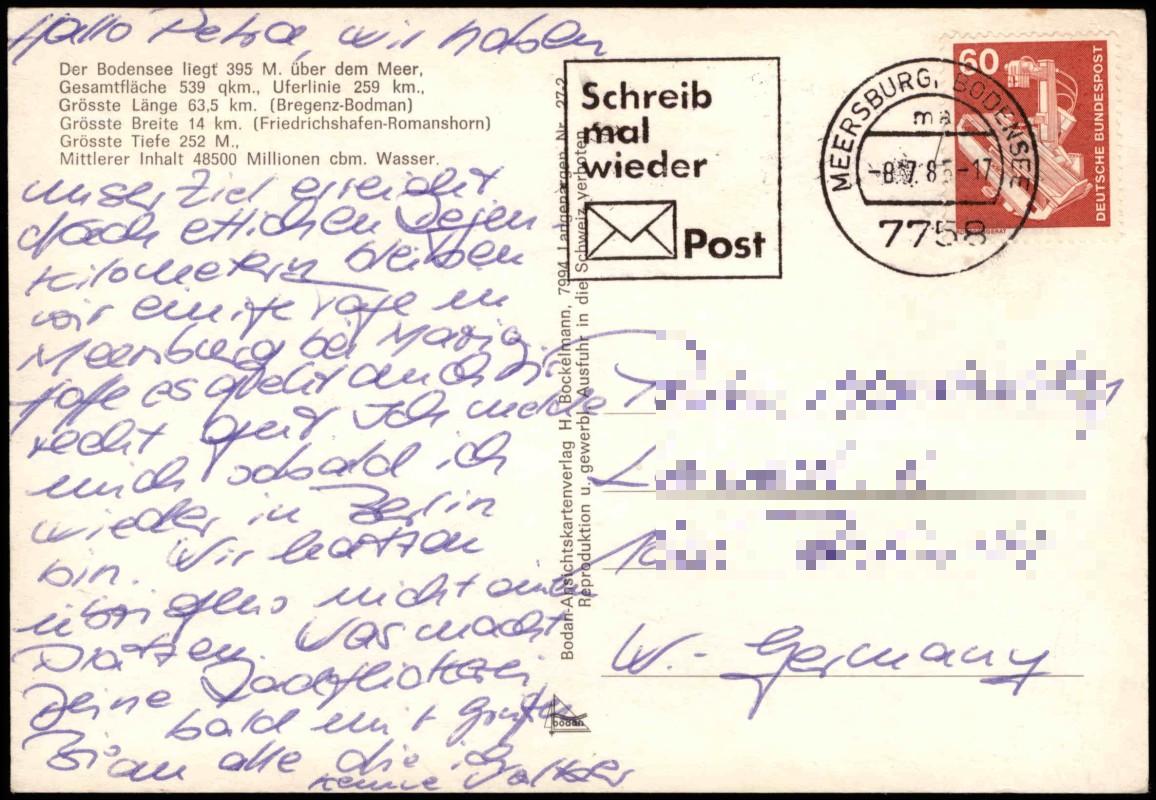 Hallo Petra, wir haben
Der Bodensee liegt 395 M. über dem Meer,
Gesamtfläche 539 qkm., Uferlinie 259 km.,
Grösste Länge 63,5 km. (Bregenz-Bodman)
Grösste Breite 14 km. (Friedrichshafen-Romanshorn)
Grösste Tiefe 252 M.,
Mittlerer Inhalt 48500 Millionen cbm. Wasser.
unser Ziel erreicht
nach etlichen
Kilometern bleiben
wir einige Tage in
Meersburg bei
es geht auch
recht gut Ich melde
mich sobald ich
wieder in Berlin
bin. Wir hatten
übrigens nicht einen
Platzen. Was macht
Deine
bald mit Grüßen
an alle die ich
kenne
Bodan-Ansichtskartenverlag H. Bockelmann, 7994 Langenargen, Nr. 27-2
Reproduktion u. gewerbl. Ausfuhr in die Schweiz verboten
bodan
Schreib
mal
wieder
Post
MEERSBURG, BODENSEE
ma
-8.7.8 -17
7758
60
DEUTSCHE BUNDESPOST
W.- Germany